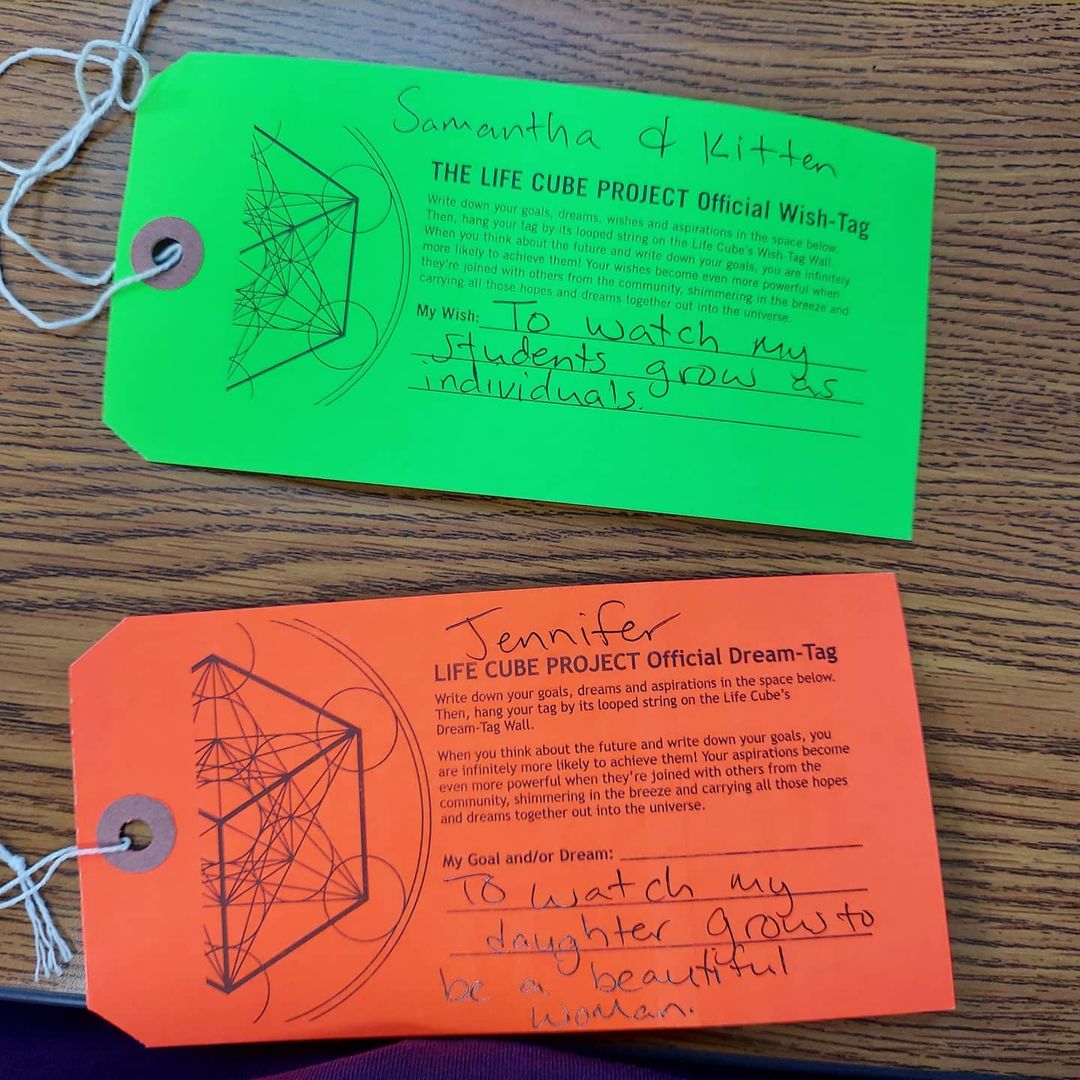 Samantha & Kitten
THE LIFE CUBE PROJECT Official Wish-Tag
Write down your goals, dreams, wishes and aspirations in the space below.
Then, hang your tag by its looped string on the Life Cube's Wish Tag Wall.
When you think about the future and write down your goals, you are infinitely
more likely to achieve them! Your wishes become even more powerful when
they're joined with others from the community, shimmering in the breeze and
carrying all those hopes and dreams together out into the universe.
My Wish: To watch my
students grow as
individuals.
Jennifer
LIFE CUBE PROJECT Official Dream-Tag
Write down your goals, dreams and aspirations in the space below.
Then, hang your tag by its looped string on the Life Cube's
Dream-Tag Wall.
When you think about the future and write down your goals, you
are infinitely more likely to achieve them! Your aspirations become
even more powerful when they're joined with others from the
community, shimmering in the breeze and carrying all those hopes
and dreams together out into the universe.
My Goal and/or Dream:
To watch my
daughter grow to
be a beautiful
woman.